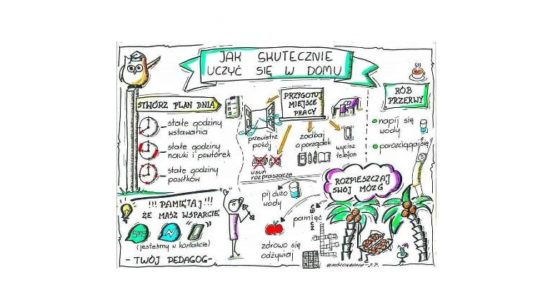 JAK SKUTECZNIE
UCZYĆ SIĘ W DOMU
STWÓRZ PLAN DNIA
stałe godziny
wstawania
stałe godziny
nauki i powtórek
stałe godziny
posiłków
PRZYGOTUJ
MIEJSCE
PRACY
przewietrz
pokój
zadbaj
o porządek
wycisz
telefon
usuń
rozpraszacze
RÓB
PRZERWY
napij się
wody
porozciągaj się
!!! PAMIĘTAJ!
ŻE MASZ WSPARCIE
(jesteśmy w kontakcie)
- TWÓJ PEDAGOG -
ROZPIESZCZAJ
SWÓJ MÓZG
pij dużo
wody
pamięć
zdrowo się
odżywiaj